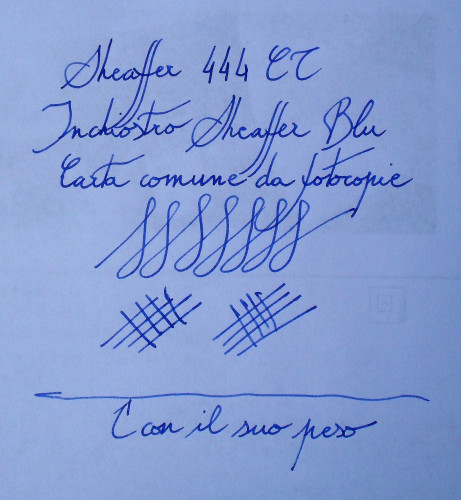 Sheaffer 444 CT
Inchiostro Sheaffer Blu
Carta comune da fotocopie
Con il suo peso